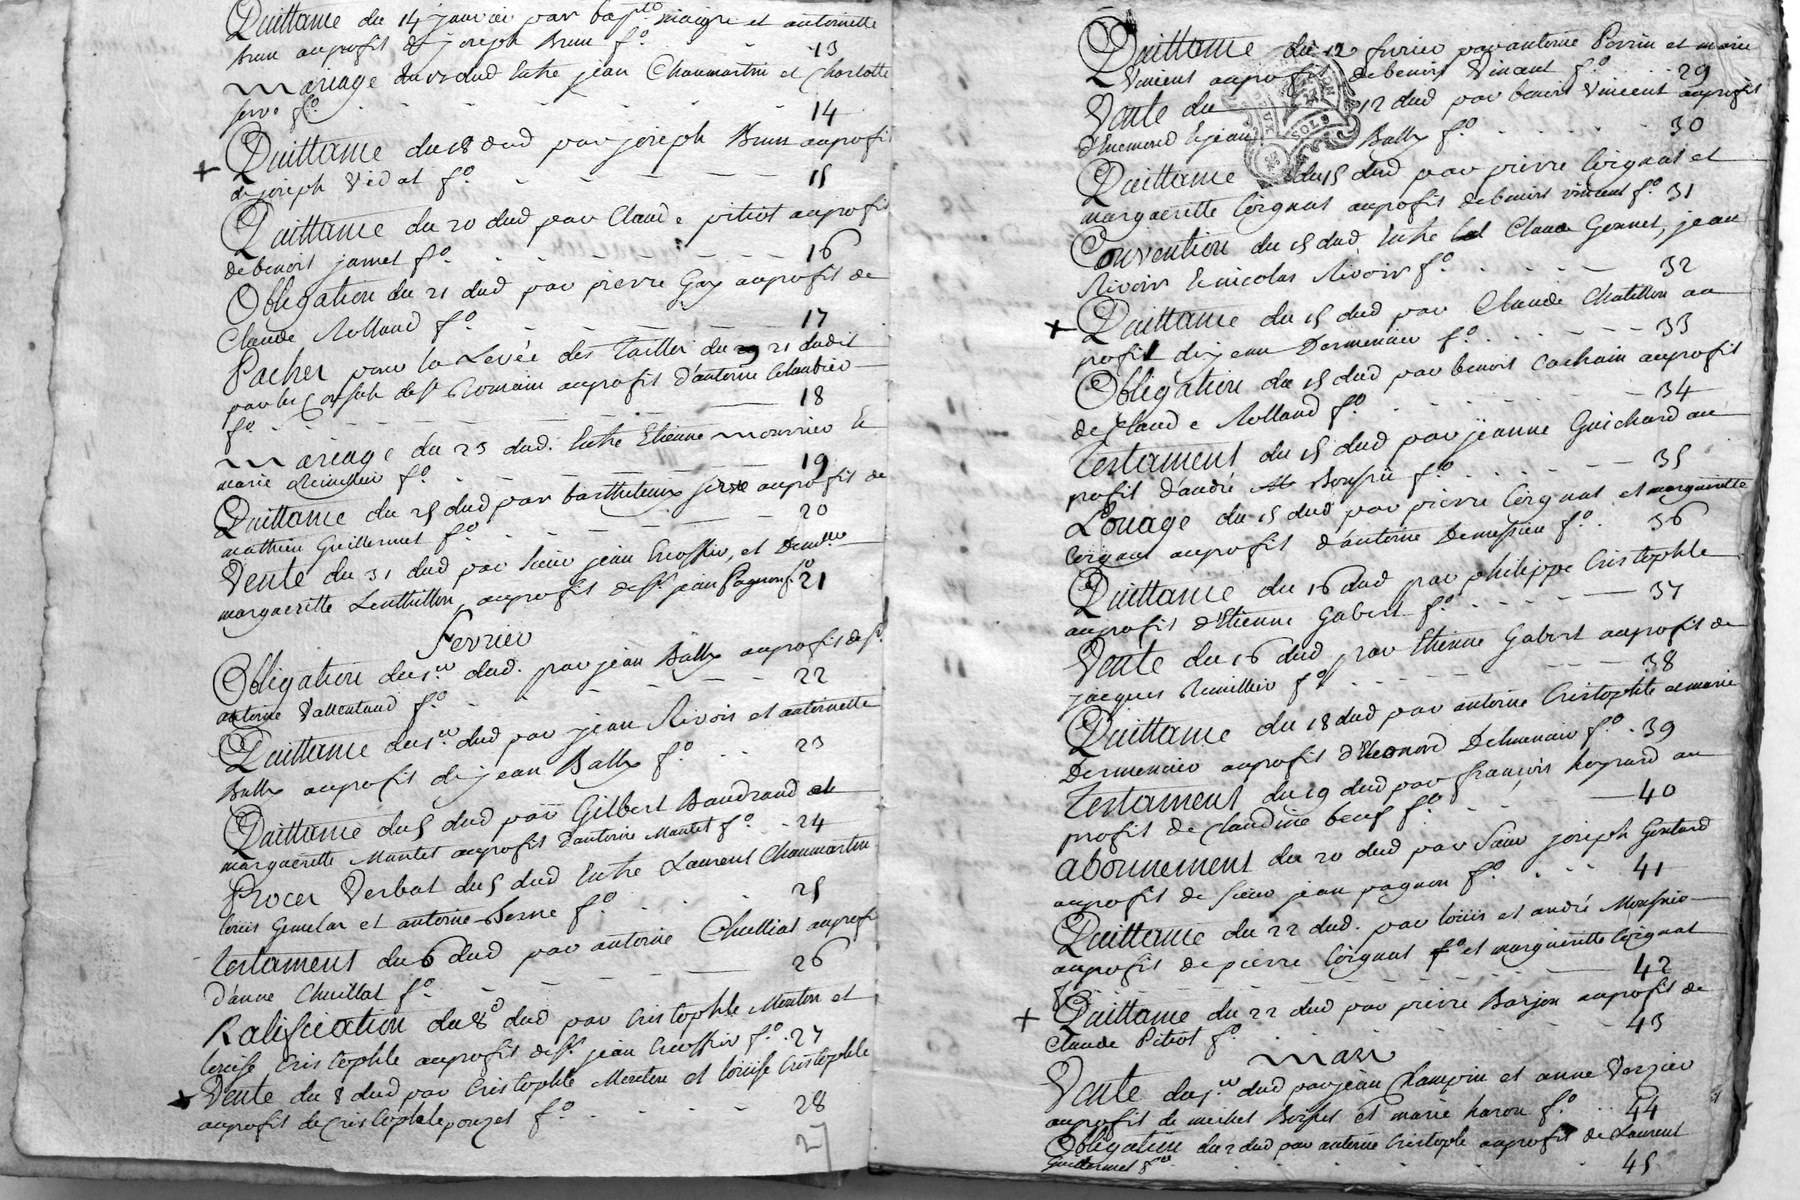 Quittance du 14 janvier par bapte maigre et antoinette
Brun auprofit de joseph Brun f.o 13
mariage du dud Entre jean Chaumartin et Charlotte
serve f.o 14
+ Quittance du 18 dud par joseph Brun auprofit
de joseph Vidal f.o 15
Quittance du 20 dud par Claude pitiot auprofit
de benoit jamet f.o 16
Obligation du 21 dud par pierre Gay auprofit de
Claude Rolland f.o 17
Pacher pour la Levée des Tailles du 21 dudit
par les Consuls de St Romain auprofit d'antoine Colombier
f.o 18
mariage du 23 dud. Entre Etienne mournier Et
marie Remillier f.o 19
Quittance du 25 dud par barthelemy serve auprofit de
mathieu Guillermet f.o 20
Vente du 31 dud par sieur jean Crossier, et Demlle
margueritte Lenthillon, auprofit de Sr. jean Pagnon f.o 21
fevrier
Obligation du 1.er dud. par jean Bally auprofit de Sr.
antoine Vallentaud f.o 22
Quittance du 1.er dud par jean Rivoir et antoinette
Bally auprofit de jean Bally f.o 23
Quittance du 5 dud par Gilbert Baudrand et
margueritte Mantet auprofit d'antoine Mantet f.o 24
Procer Verbal du 5 dud Entre Laurent Chaumartin
louis Gemelar et antoine Serve f.o 25
Testament du 6 dud par antoine Chuillat auprofit
d'anne Chuillat f.o 26
Ratification du 8 dud par Cristophle Monton et
louise Cristophle auprofit de Sr. jean Crossier f.o 27
+ Vente du 8 dud par Cristophle Monton et louise Cristophle
auprofit de Cristophle pouzet f.o 28
27
Quittance du 12 fevrier par antoine Perrin et marie
Vincent auprofit de benoit Vincent f.o 29
Vente du 12 dud par benoit Vincent auprofit
d'huemond Et jean Bally f.o 30
Quittance du 15 dud par pierre Coignat et
margueritte Coignat auprofit de benoit vincent f.o 31
Convention du 15 dud Entre Claude Gonnet, jean
Rivoir Et nicolas Rivoir f.o 32
+ Quittance du 15 dud par Claude Chatillon au
profit de jean Dormenier f.o 33
Obligation du 15 dud par benoit Cachain auprofit
de Claude Rolland f.o 34
Testament du 15 dud par jeanne Guichard au
profit d'andré f.o 35
Louage du 15 dud par pierre Coignat et margueritte
Coignat auprofit d'antoine f.o 36
Quittance du 16 dud par philippe Cristophle
auprofit d'Etienne Gabert f.o 37
Vente du 16 dud par Etienne Gabert auprofit de
jacques Remillier f.o 38
Quittance du 18 dud par antoine Cristophle et marie
Dormenier auprofit d'Eleonord f.o 39
Testament du 19 dud par françois heyrard au
profit de claudine beuf f.o 40
abonnement du 20 dud par Sieur joseph Gontard
auprofit de sieur jean pagnon f.o 41
Quittance du 22 dud. par louis et andré
auprofit de pierre Coignat et margueritte Coignat
f.o 42
+ Quittance du 22 dud par pierre Barjon auprofit de
Claude Pitiot f.o 43
mars
Vente du 1.er dud par jean Champin et anne Verzier
auprofit de michel et marie haron f.o 44
Obligation du 2 dud par antoine Cristophle auprofit de Laurent
Guillermet f.o 45